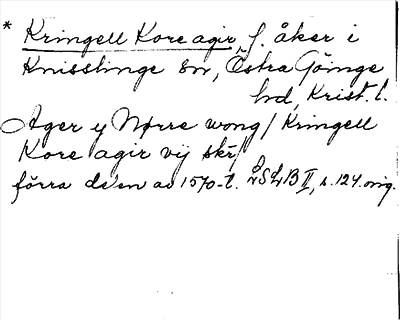 * Kringell Kore agir, f. åker i
Knisslinge sn, Östra Göinge
hd, Krist. l.
Ager y Nørre wong / Kringell
Kore agir vij skr /
förra delen av 1570-t. LSLB II, s. 124. orig.